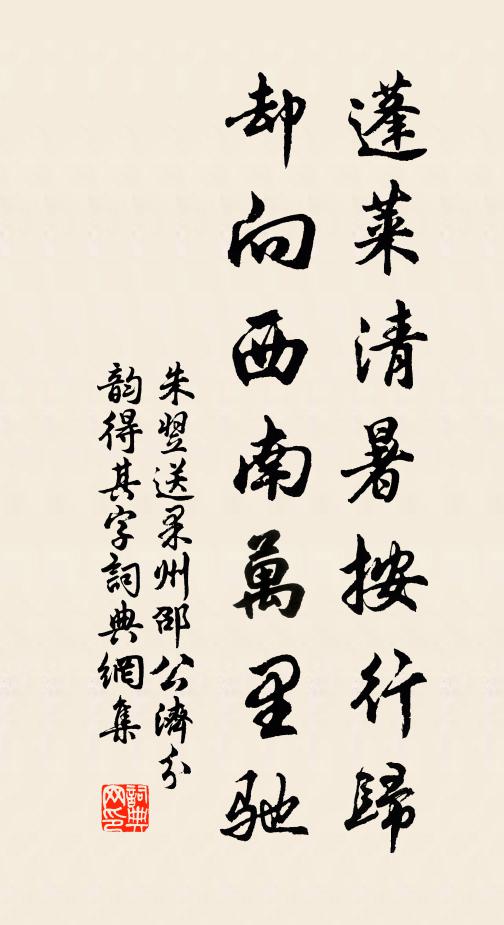 蓬萊清暑按行歸
却向西南萬里馳
朱翌送果州邵公濟分
韵得其字詞典網集
詞典
网印